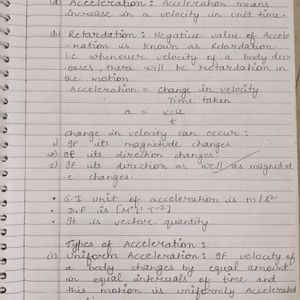 (a) Acceleration : Acceleration means
increase in a velocity in unit time.
(b) Retardation : Negative value of Accele
-ration is known as Retardation
i.e whenever velocity of a body decr
eases, there will be retardation in
the motion
Acceleration = change in velocity
Time taken
a = v-u
t
change in velocity can occur :
1) If its magnitude changes
2) If its direction changes
3) If its direction as well as magnitud
-e changes.
• S.I unit of acceleration is m/s²
• D.F is [M⁰L¹T⁻²]
• It is vector quantity.
Types of Acceleration :
(i) Uniform Acceleration : If velocity of
a body changes by equal amount
in equal intervals of time and
this motion is uniformly Accelerated